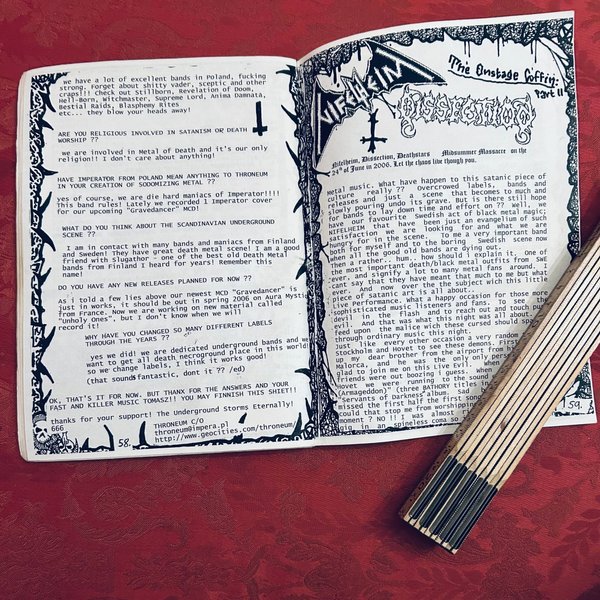 we have a lot of excellent bands in Poland, fucking
strong. Forget about shitty vader, sceptic and other
craps!!! Check out Stillborn, Revelation of Doom,
Hell-Born, Witchmaster, Supreme Lord, Anima Damnata,
Bestial Raids, Blasphemy Rites
etc... they blow your heads away!
ARE YOU RELIGIOUS INVOLVED IN SATANISM OR DEATH
WORSHIP ??
we are involved in Metal of Death and it's our only
religion!! I don't care about anything!
HAVE IMPERATOR FROM POLAND MEAN ANYTHING TO THRONEUM
IN YOUR CREATION OF SODOMIZING METAL ??
yes of course, we are die hard maniacs of Imperator!!!!
This band rules! Lately we recorded 1 Imperator cover
for our upcoming "Gravedancer" MCD!
WHAT DO YOU THINK ABOUT THE SCANDINAVIAN UNDERGROUND
SCENE ??
I am in contact with many bands and maniacs from Finland
and Sweden! They have great death metal scene! I am a good
friend with Slugathor - one of the best old Death Metal
bands from Finland I heard for years! Remember this
name!
DO YOU HAVE ANY NEW RELEASES PLANNED FOR NOW ??
As i told a few lies above our newest MCD "Gravedancer" is
just in works, it should be out in spring 2006 on Aura Mystic
from France. Now we are working on new material called
"Unholy Ones", but I don't know when we will
record it!
WHY HAVE YOU CHANGED SO MANY DIFFERENT LABELS
THROUGH THE YEARS ??
yes we did! we are dedicated underground bands and we
want to get all death necroground place in this world!
so we change labels, I think it works good!
(that sounds fantastic, dont it ?? /ed)
OK, THAT'S IT FOR NOW. BUT THANK FOR THE ANSWERS AND YOUR
FAST AND KILLER MUSIC TOMASZ!! YOU MAY FINNISH THIS SHIET!!
thanks for your support! The Underground Storms Eternally!
666
THRONEUM C/O
throneum@impera.pl
http://www.geocities.com/throneum
58.
NIFELHEIM
The Onstage Coffin:
Part II
DISSECTION
Nifelheim, Dissection, Deathstars Midsummer Massacre on the
24th of June in 2006. Let the chaos live though you.
Metal music. what have happen to this satanic piece of
culture really ?? overcrowed labels, bands and
releases and just a scene that becomes to much and
slowly pouring undo its grave. But is there still hope
for bands to lay down time and effort on ?? Well, we
have our favourite Swedish act of black metal magic;
NIFELHEIM that have been just an evangelium of such
satisfaction we are looking for and what we are
hungry for in the scene. To me a very important band
both for myself and to the boring Swedish scene now
when all the good old bands are dying out.
when a rather.. hum.. how should i explain it. One of
the most important death/black metal outfits from SWE
ever, and signify a lot to many metal fans around. I
cant say that they have meant that much to me but what
ever. And now over the the subject wich this little
piece of satanic art is all about..
Live performance. what a happy occasion for those more
sophisticated music listeners and fans. To see the
devil in the flash and to reach out and touch our
evil. And that was what this night was all about. To
feed upon the malice wich these cursed should spawn
through ordinary music this night.
just like every other occasion a very random
Stockholm and Hovet to see these churned
up my dear brother from the airport
Malorca, and he was the only person
glad to join me on this Live Evil.
friends were out boozing i guess. when
Hovet we were running to the sound
(Armageddon)" (three BATHORY titles in
"Servants of Darkness" album.
missed the first half the first song
could that stop me from worship
moment ? NO !! I was almost
gig in an spineless coma so
59.